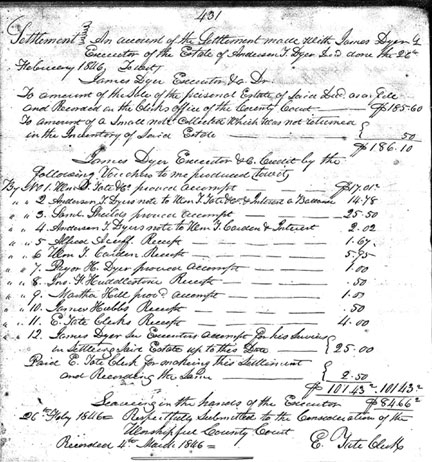 431
Settlement An account of the Settlement made with James Dyer Jr
Executor of the Estate of Anderson T Dyer Dcd done the 26th
February 1846, To wit,
James Dyer Executor &c Dr
To amount of the Sale of the personal Estate of Said Dcd as a file
and Recorded in the Clerks office of the County Court — $185.60
To amount of a Small note Collected Which Was not returned
in the Inventory of Said Estate — .50
$186.10
James Dyer Executor &c Credit by the
following Vouchers to me produced towit
By No 1. Wm T Tate &Co proven accompt — $17.01
" " 2 Anderson T. Dyers note to Wm T Tate &Co. & Interest a Ballance 14.78
" " 3. Saml Shields proven accompt — 25.50
" " 4. Anderson T. Dyers note to Wm T Carden & Interest 2.02
" " 5 Alfred Receipt — 1.67
" " 6 Wm T. Carden Receipt — 5.95
" " 7. Pryor H. Dyer proven accompt — 1.00
" " 8. Jno. F. Huddlestone Receipt — .50
" " 9. Martha Hill provd accompt — 1.
" " 10. James Hubbs Receipt — .50
" " 11. E. Tate Clerks Receipt — 4.00
" " 12. James Dyer Sen Executors accompt for his Services
in Settling Said Estate up to this Date — 25.00
Paid E. Tate Clerk for making this Settlement
and Recording the Same — 2.50
$101 43 101 43
Leaving in the hands of the Executor $84 66
26th Feby 1846 = Respectfully Submitted to the Consideration of the
Worshipful County Court
Recorded 4th March 1846 = E. Tate Clerk